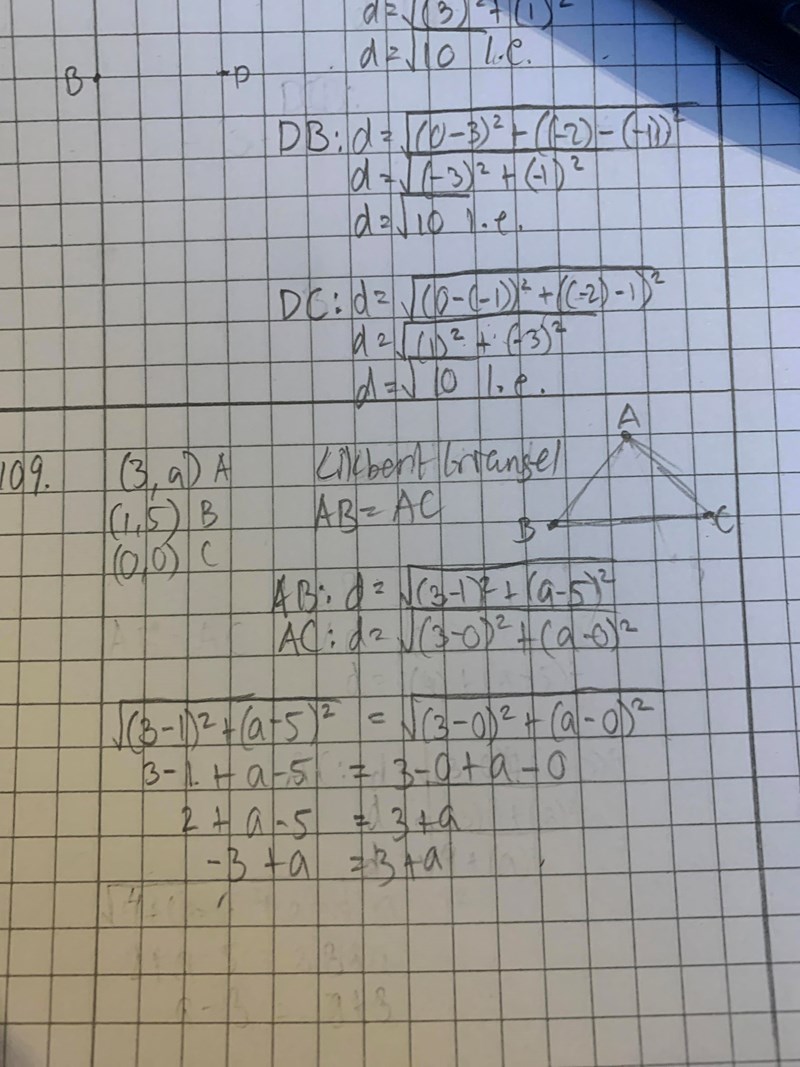 d=√(3)²+(1)²
d=√10 l.e.
B
D
DB: d=√(0-3)²+((-2)-(-1))²
d=√(-3)²+(-1)²
d=√10 l.e.
DC: d=√(0-(-1))²+((-2)-1)²
d=√(1)²+(-3)²
d=√10 l.e.
109. (3,a) A Likbent triangel
(1,5) B AB=AC
(0,0) C
A
B C
AB: d=√(3-1)²+(a-5)²
AC: d=√(3-0)²+(a-0)²
√(3-1)²+(a-5)² = √(3-0)²+(a-0)²
3-1+a-5 = 3-0+a-0
2+a-5 = 3+a
-3+a = 3+a